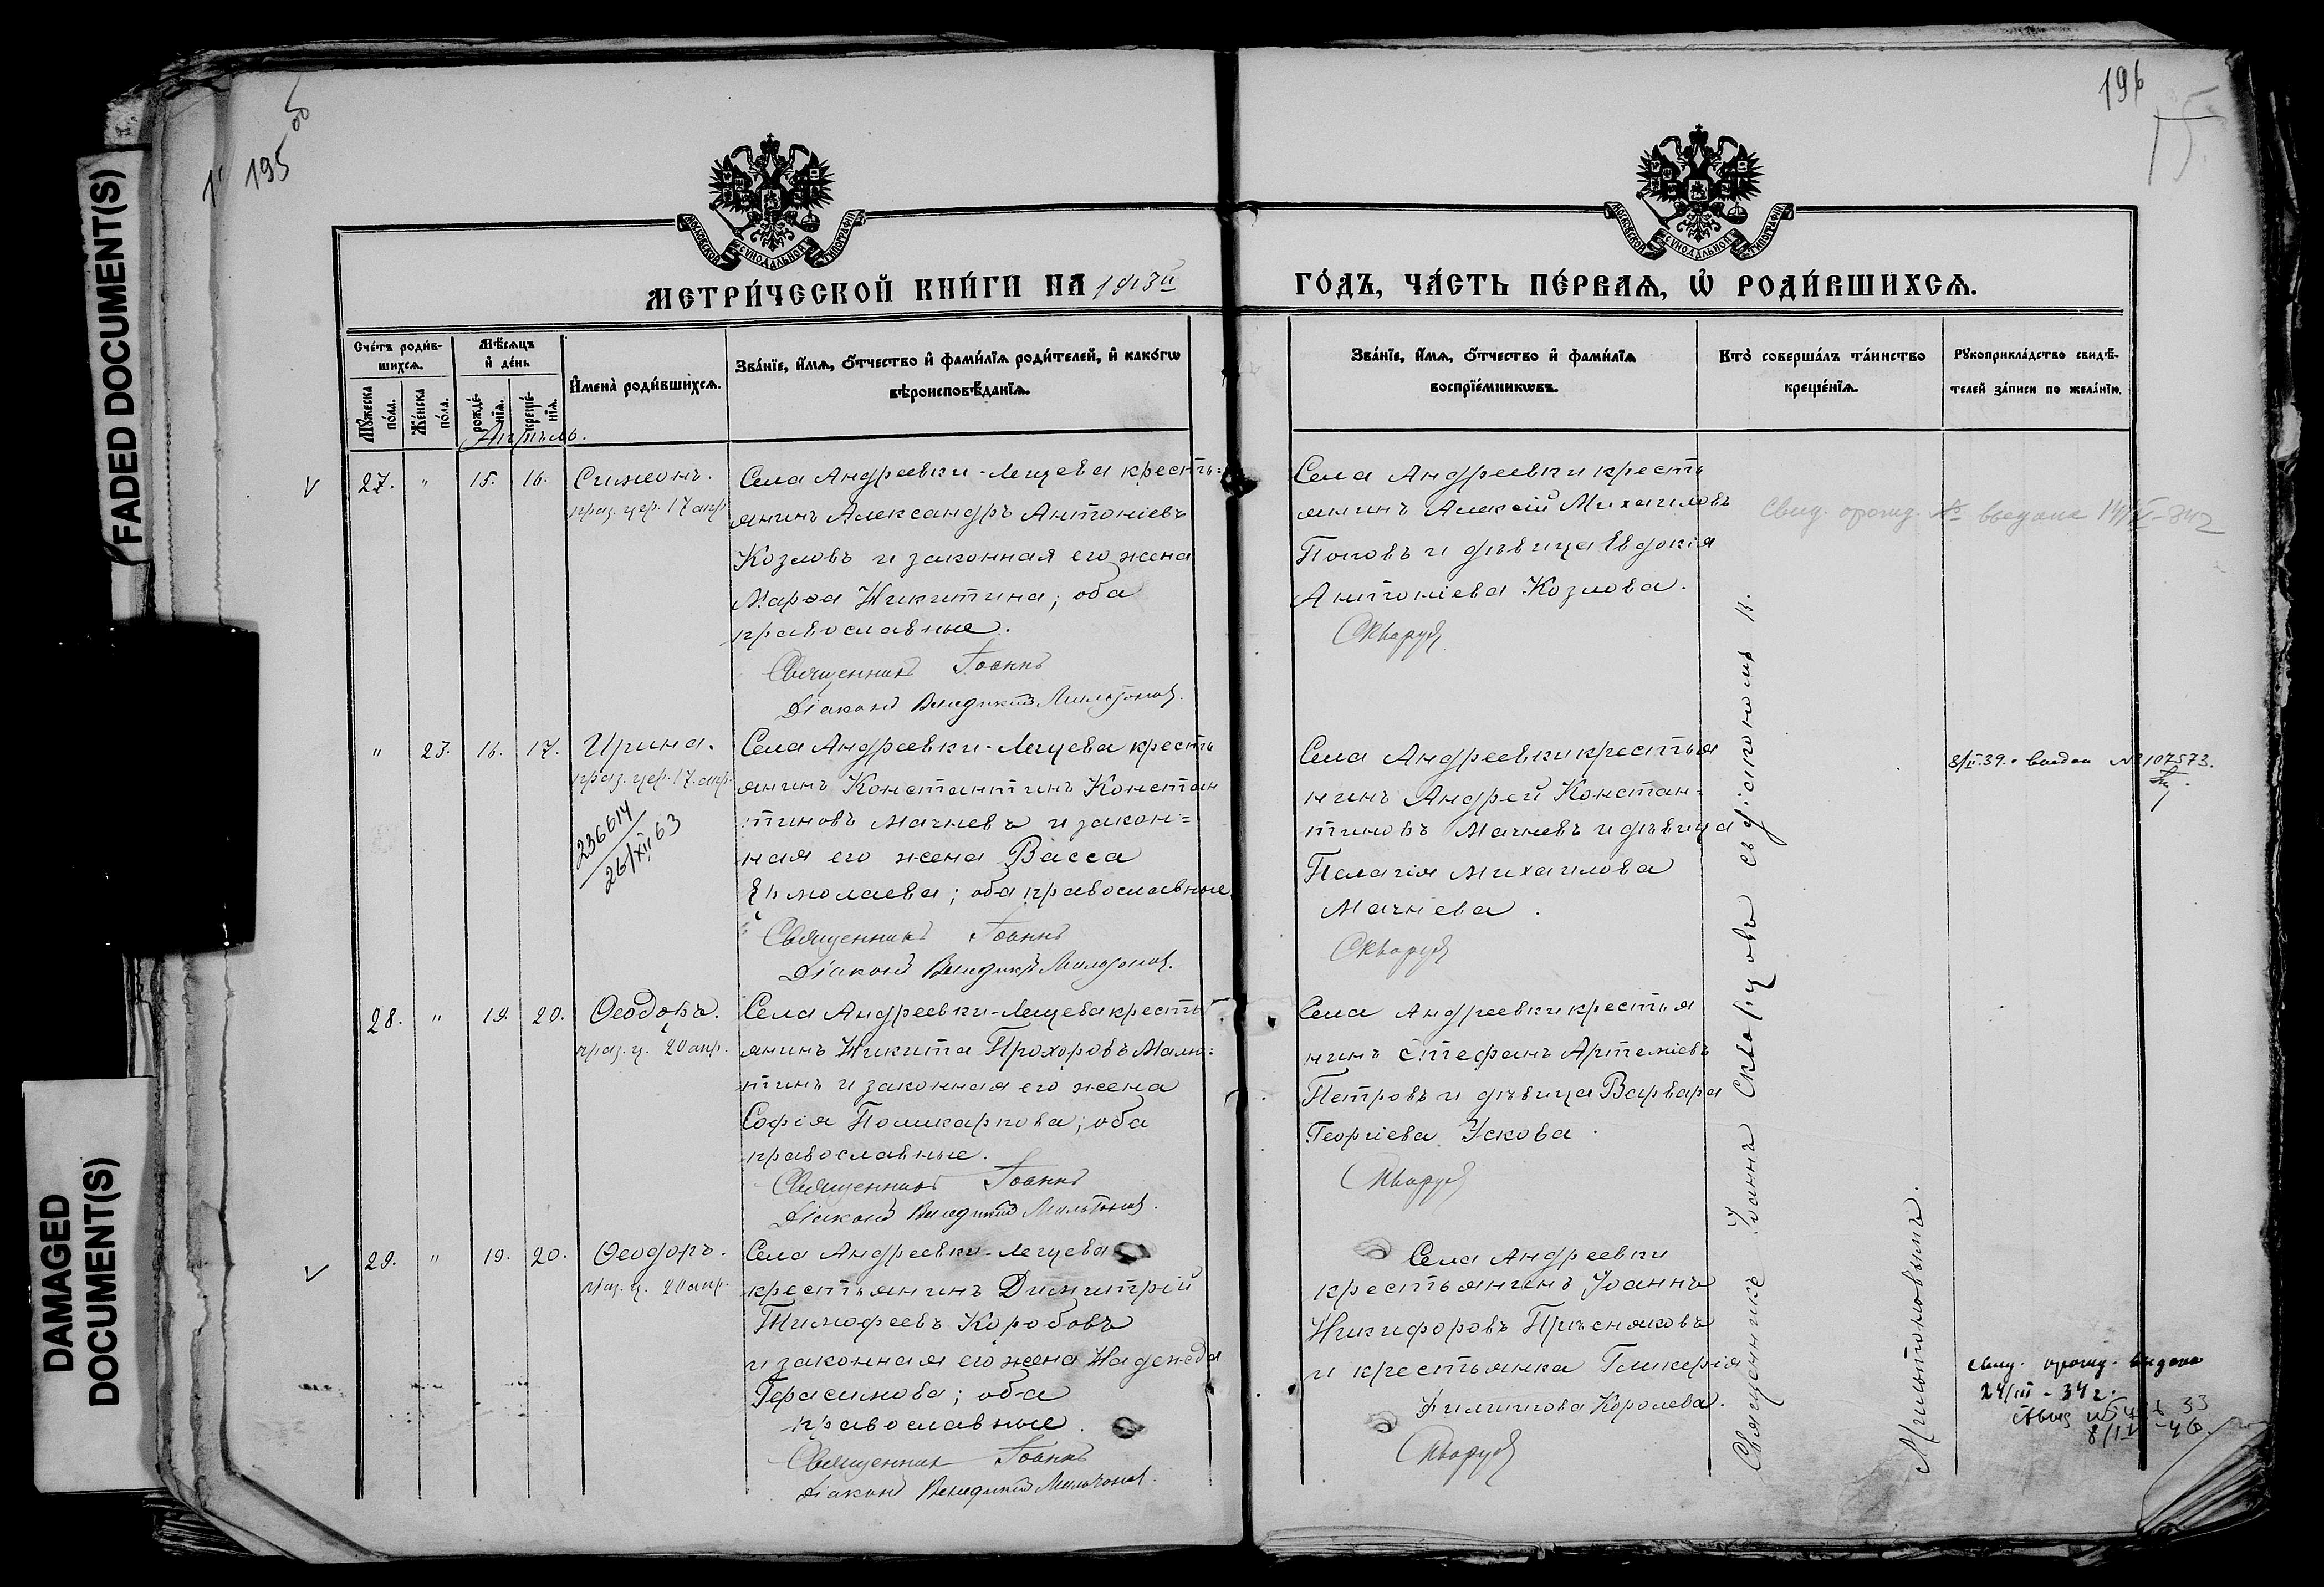 FADED DOCUMENT(S)
DAMAGED
DOCUMENT(S)
195 об
196
15
МОСКОВСКОЙ СѴНОДАЛЬНОЙ ТИПОГРАФІИ
МОСКОВСКОЙ СѴНОДАЛЬНОЙ ТИПОГРАФІИ
МЕТРИ́ЧЕСКОЙ КНИ́ГИ НА 1913й
ГО́ДЪ, ЧА́СТЬ ПЕ́РВАѦ, Ѡ҆ РОДИ́ВШИХСѦ.
Сче́тъ роди́в-
шихсѧ.
Мꙋ́жеска
по́ла.
Же́нска
по́ла.
Мѣ́сѧцъ
и҆ де́нь
рожде́-
нїѧ.
креще́-
нїѧ.
И҆мена̀ роди́вшихсѧ.
Зва́нїе, и҆́мѧ, ѻ҆́тчество и҆ фами́лїѧ роди́телей, и҆ како́гѡ
вѣроисповѣ́данїѧ.
Зва́нїе, и҆́мѧ, ѻ҆́тчество и҆ фами́лїѧ
воспрїе́мникѡвъ.
Кто̀ соверша́лъ та́инство
креще́нїѧ.
Рꙋкоприкла́дство свидѣ́-
телей за́писи по жела́нїю.
Апрѣль.
27. " 15. 16. Симеонъ.
праз. цер. 17 апр.
Села Андреевки-Лещева кресть=
янинъ Александръ Антоніевъ
Козловъ и законная его жена
Марѳа Никитина; оба
православные.
Священникъ Іоаннъ
Діаконъ Венедиктъ Мильтоновъ.
Села Андреевки кресть
янинъ Алексій Михаиловъ
Поповъ и дѣвица Евдокія
Антоніева Козлова.
Скворцов
Свид. о рожд. выдана
" 23. 16. 17. Ирина.
праз. цер. 17. апр.
236614
26/XII 63
Села Андреевки-Лещева кресть
янинъ Константинъ Констан
тиновъ Мачневъ и закон=
ная его жена Васса
Ермолаева; оба православные
Священникъ Іоаннъ
Діаконъ Венедиктъ Мильтоновъ.
Села Андреевки крестья
нинъ Андрей Констан=
тиновъ Мачневъ и дѣвица
Пелагія Михаилова
Мачнева.
Скворцов
выдан № 107573.
28. " 19. 20. Ѳеодоръ.
праз. ц. 20 апр.
Села Андреевки-Лещева кресть
янинъ Никита Прохоровъ Малю=
тинъ и законная его жена
Софія Поликарпова; оба
православные.
Священникъ Іоаннъ
Діаконъ Венедиктъ Мильтоновъ.
Села Андреевки крестья
нинъ Стефанъ Артеміевъ
Петровъ и дѣвица Варвара
Георгіева Ускова.
Скворцов
29. " 19. 20. Ѳеодоръ.
праз. ц. 20 апр.
Села Андреевки-Лещева
крестьянинъ Димитрій
Тимофеевъ Коробовъ
и законная его жена Надежда
Герасимова; оба
православные.
Священникъ Іоаннъ
Діаконъ Венедиктъ Мильтоновъ.
Села Андреевки
крестьянинъ Іоаннъ
Никифоровъ Прѣсняковъ
и крестьянка Гликерія
Филиппова Королева.
Скворцов
Священникъ Іоаннъ Скворцовъ съ діакономъ В.
Мильтоновымъ.
свид. о рожд. выдана
24/III - 34 г.
8/IV - 46.